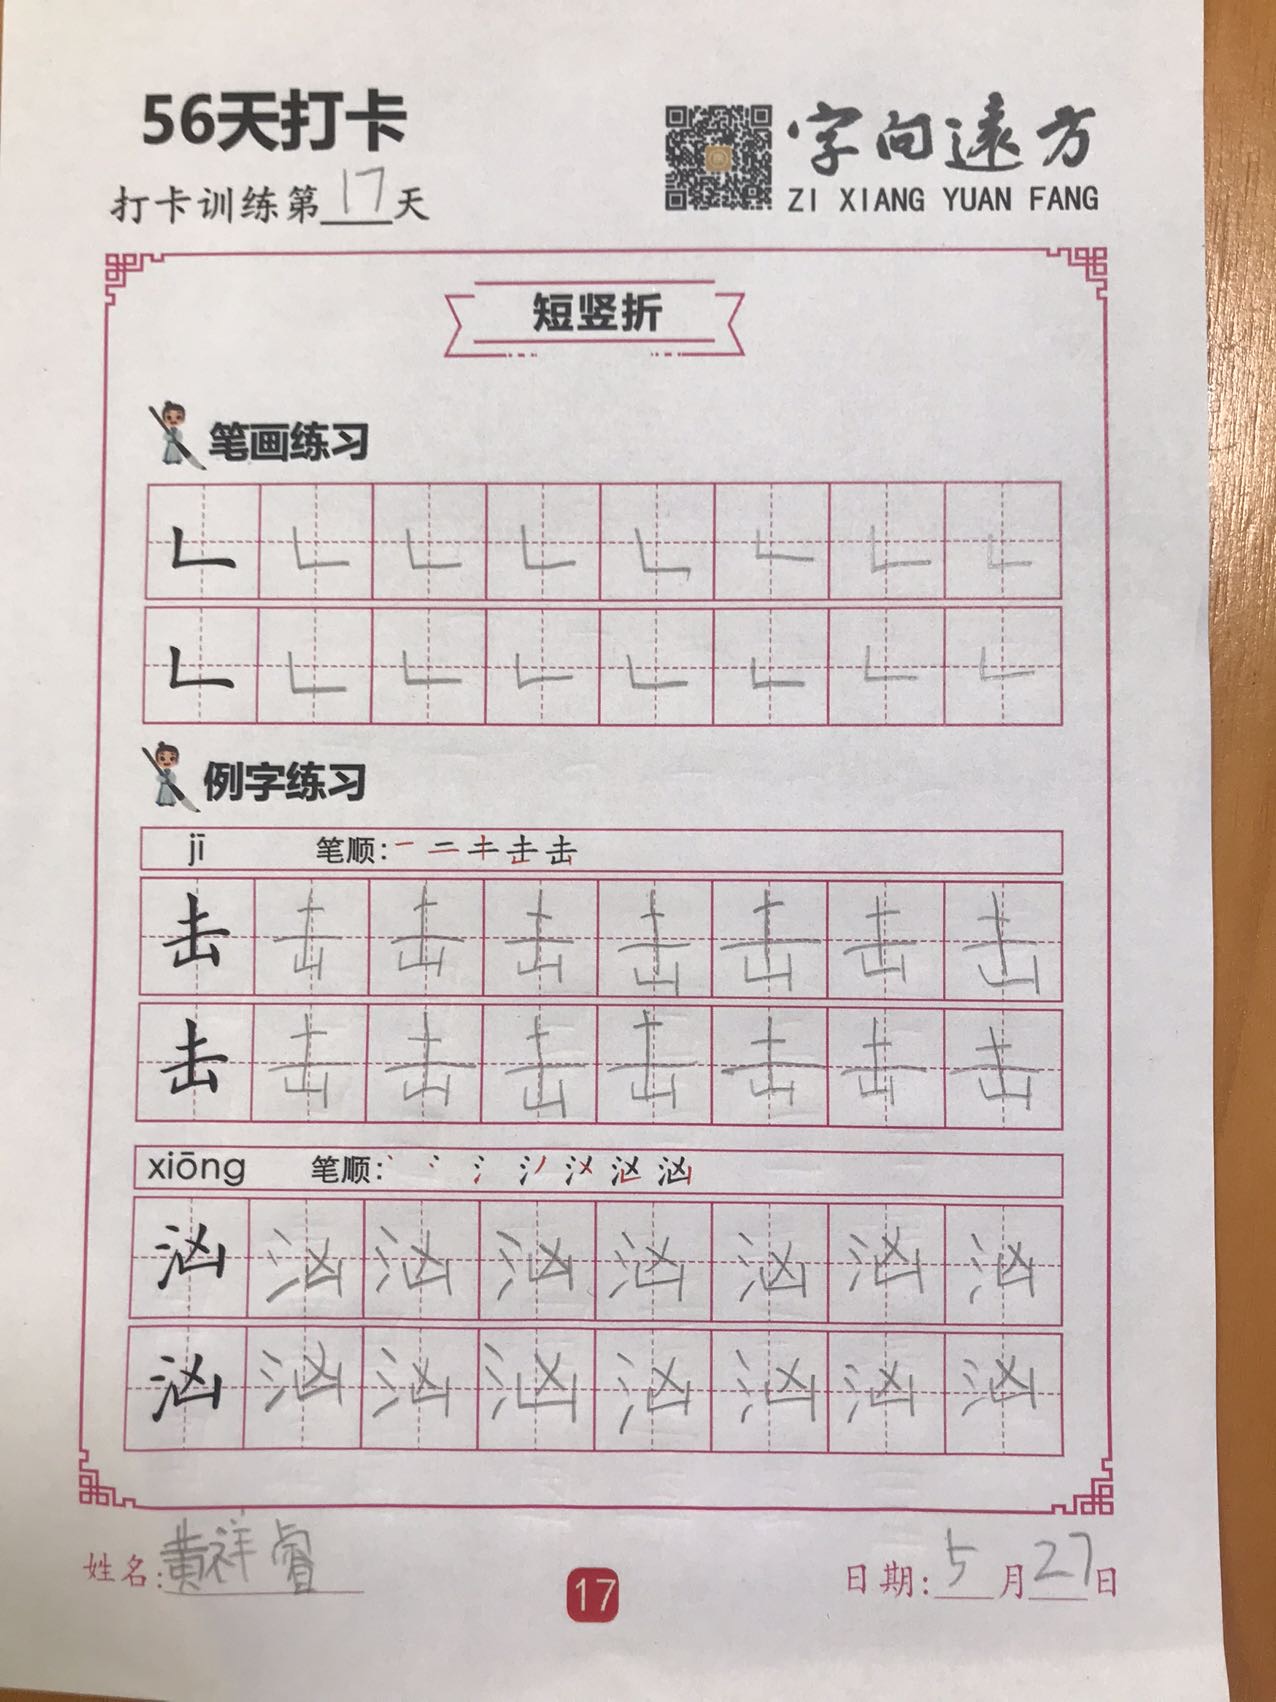 56天打卡
打卡训练第17天
字向遠方
ZI XIANG YUAN FANG
短竖折
笔画练习
𠃊 𠃊 𠃊 𠃊 𠃊 𠃊 𠃊 𠃊
𠃊 𠃊 𠃊 𠃊 𠃊 𠃊 𠃊 𠃊
例字练习
jī 笔顺: 一 二 キ 击 击
击 击 击 击 击 击 击 击
击 击 击 击 击 击 击 击
xiōng 笔顺: 丶 冫 氵 汹
汹 汹 汹 汹 汹 汹 汹 汹
汹 汹 汹 汹 汹 汹 汹 汹
姓名:黄祥睿
17
日期:5月27日